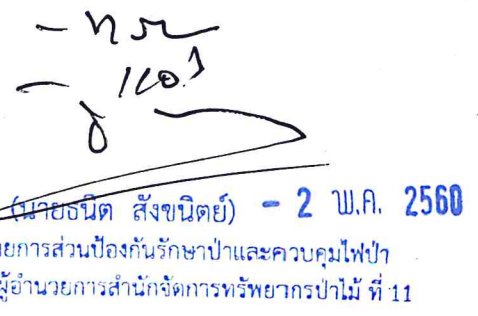 - ทราบ
(นายธนิต สังขนิตย์) - 2 พ.ค. 2560
ยการส่วนป้องกันรักษาป่าและควบคุมไฟป่า
ผู้อำนวยการสำนักจัดการทรัพยากรป่าไม้ ที่ 11